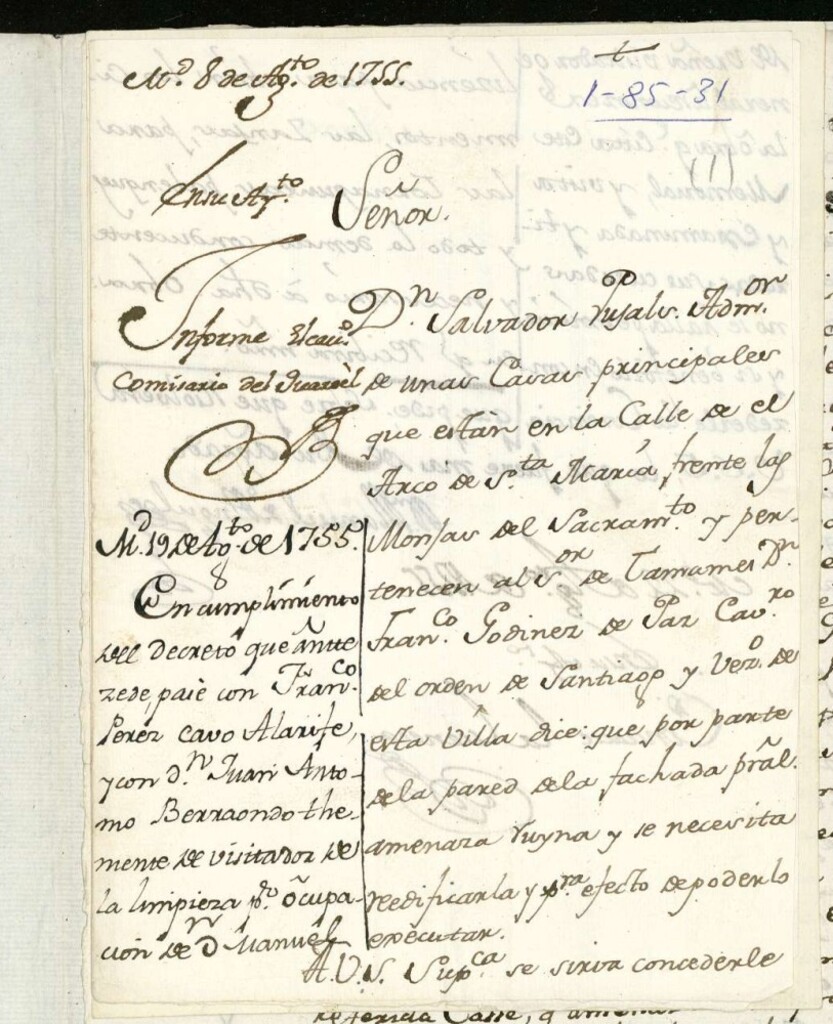 M.d 8 de Ag.to de 1755.
+
1-85-31
(1)
En su Ay.to
Señor.
Informe El cav.o
Comisario del Quartel
M.d 19 de Ag.to de 1755.
En cumplimiento
del decreto que ante
zede, pasè con Fran.co
Perez cavo Alarife,
y con d.n Juan Anto-
nio Berraondo the-
niente de visitador de
la limpieza p.r ocupa-
cion de D.n Manuel
D.n Salvador Pujals. Adm.or
de unas Casas principales
que estàn en la Calle de el
Arco de S.ta María, frente las
Monjas del Sacram.to y per-
tenecen al S.or de Tamames D.n
Fran.co Godinez de Paz Cav.ro
del orden de Santiago y Vez.o de
esta Villa dice: que por parte
de la pared de la fachada prâl.
amenaza ruyna y se necesita
reedificarla y p.ra efecto de poderlo
executar.
A V.S. Sup.ca se sirva concederle
referida Calle, q amena